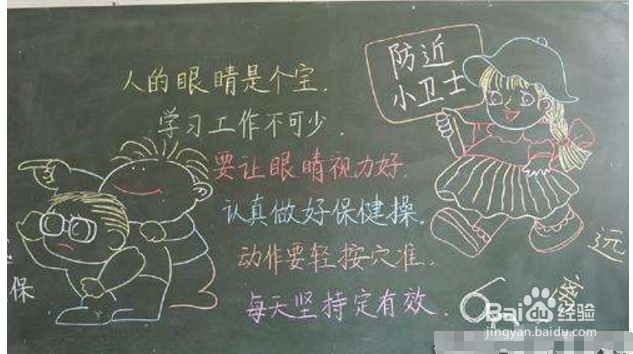 防近
小卫士
人的眼睛是个宝.
学习工作不可少.
要让眼睛视力好.
认真做好保健操.
动作要轻按穴准.
每天坚持定有效.
保
远
Baidu经验
jingyan.baidu.com